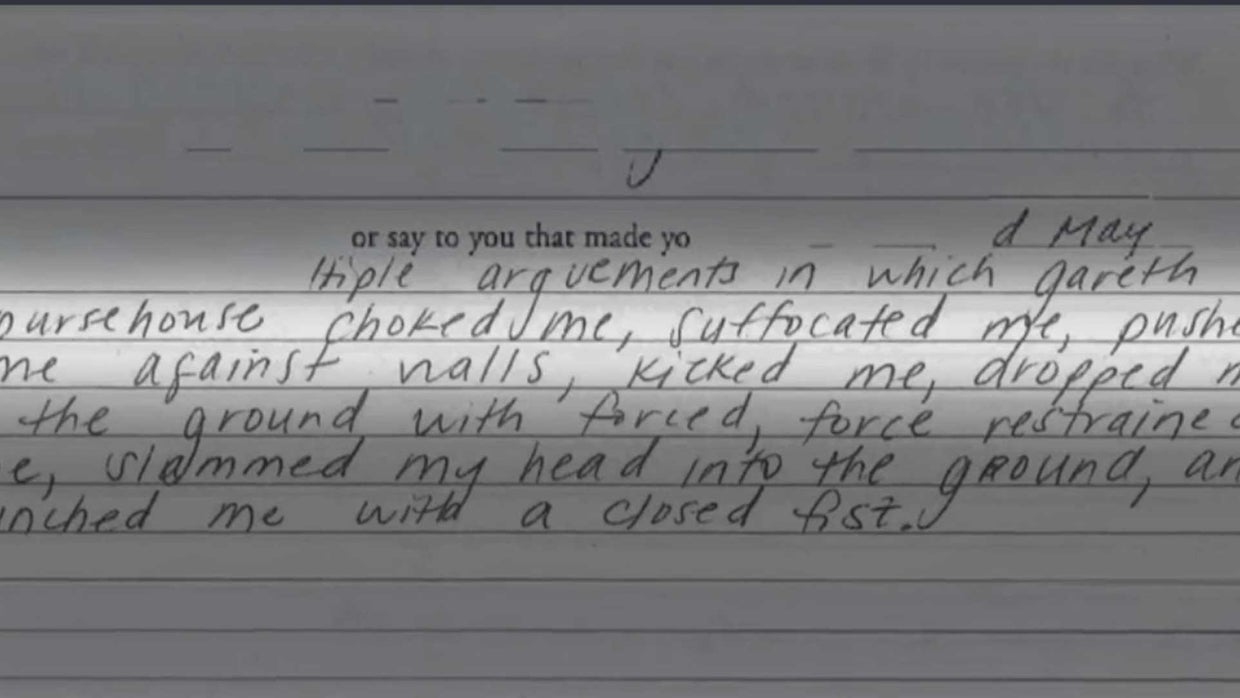 or say to you that made yo d May
ltiple arguements in which gareth
oursehouse choked me, suffocated me, pushe
me against walls, kicked me, dropped m
the ground with forced, force restrained
e, slammed my head into the ground, an
unched me with a closed fist.